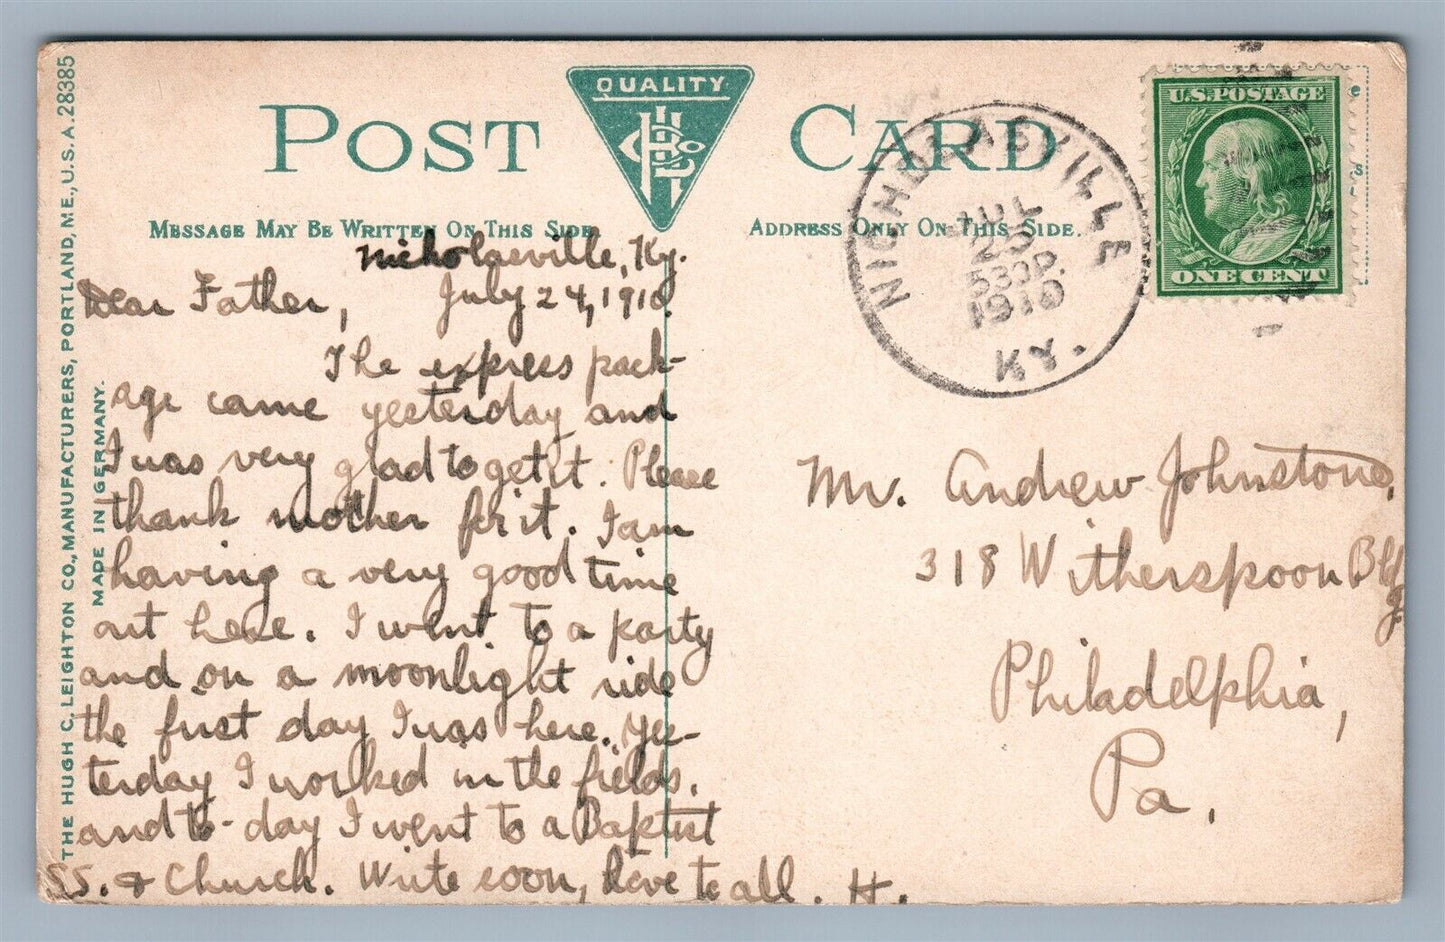 POST CARD
QUALITY
MESSAGE MAY BE WRITTEN ON THIS SIDE
ADDRESS ONLY ON THIS SIDE.
THE HUGH C. LEIGHTON CO., MANUFACTURERS, PORTLAND, ME., U.S.A. 28385
MADE IN GERMANY.
NICHOLASVILLE
JUL
25
530P.
1910
KY.
U.S. POSTAGE
ONE CENT
Nicholasville, Ky.
Dear Father, July 24, 1910.
The express pack-
age came yesterday and
I was very glad to get it. Please
thank mother for it. I am
having a very good time
out here. I went to a party
and on a moonlight ride
the first day I was here. Yes-
terday I worked in the fields.
and to-day I went to a Baptist
S.S. & Church. Write soon, love to all. H.
Mr. Andrew Johnstone,
318 Witherspoon Bldg.
Philadelphia,
Pa.